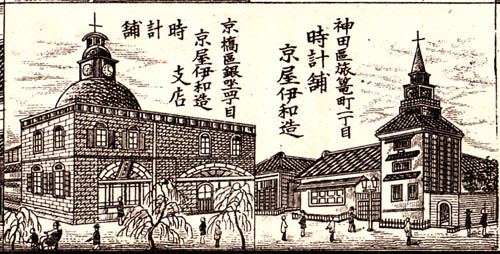 神田區旅篭町二丁目
時計舗
京屋伊和造
京橋區銀座四丁目
京屋伊和造
支店
時計舗